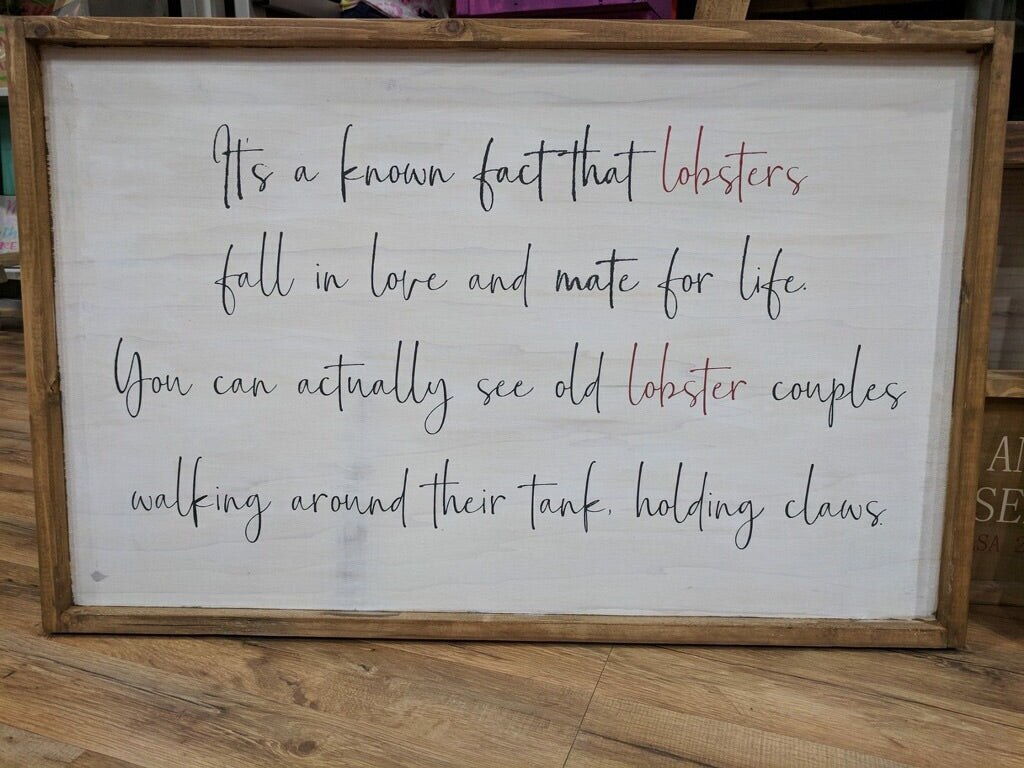 It's a known fact that lobsters
fall in love and mate for life.
You can actually see old lobster couples
walking around their tank, holding claws.